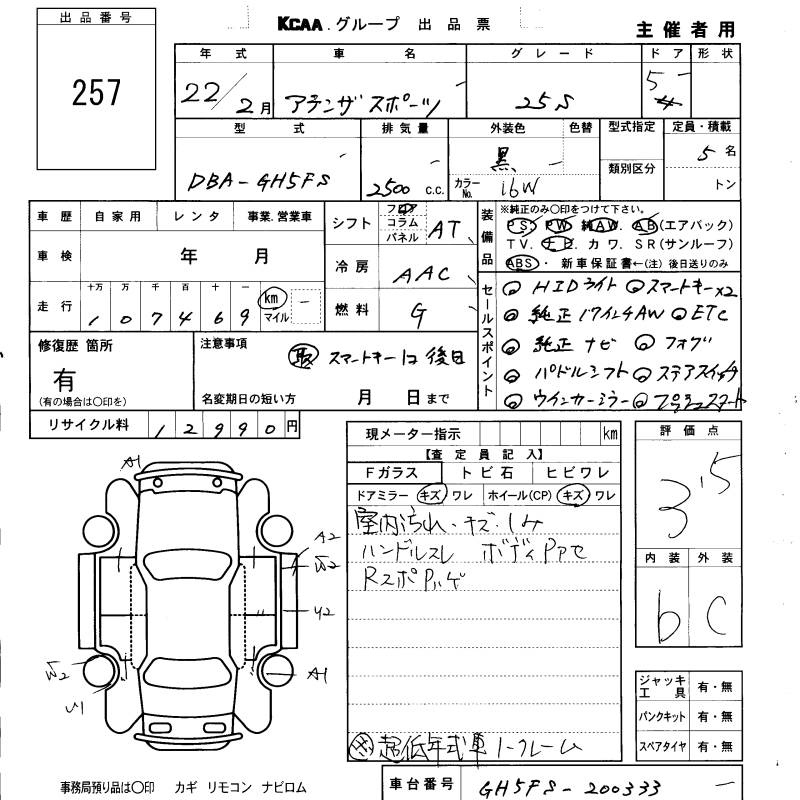 出品番号
257
KCAA グループ 出品票
主催者用
年式 車名 グレード ドア 形状
22/2月 アテンザスポーツ 25S 5
型式 排気量 外装色 色替 型式指定 定員・積載
類別区分
DBA-GH5FS 2500 c.c. 黒 カラーNo. 16W 5名
トン
車歴 自家用 レンタ 事業.営業車
車検 年 月
走行 十万 万 千 百 十 一
107469 km マイル
シフト フロア コラム パネル AT
冷房 AAC
燃料 G
装備品
※純正のみ〇印をつけて下さい。
PS PW 純AW. AB(エアバック)
TV. ナビ カワ. SR(サンルーフ)
ABS・ 新車保証書←(注) 後日送りのみ
セールスポイント
◎HIDライト ◎スマートキー×2
◎純正17インチAW ◎ETC
◎純正ナビ ◎フォグ
◎パドルシフト ◎ステアスイッチ
◎ウインカーミラー ◎プッシュスタート
修復歴 箇所
有
(有の場合は〇印を)
注意事項
取 スマートキー1ヶ後日
名変期日の短い方 月 日まで
リサイクル料 12990円
現メーター指示 km
【査定員記入】
Fガラス トビ石 ヒビワレ
ドアミラー キズ ワレ ホイール(CP) キズ ワレ
室内汚れ・キズ・しみ
ハンドルスレ ボディPアセ
RスポPハゲ
超低年式車 1-クレーム
評価点
3.5
内装 外装
b C
ジャッキ工具 有・無
パンクキット 有・無
スペアタイヤ 有・無
A1
A2
W2
Y2
A1
W2
U1
事務局預り品は〇印 カギ リモコン ナビロム
車台番号 GH5FS-200333